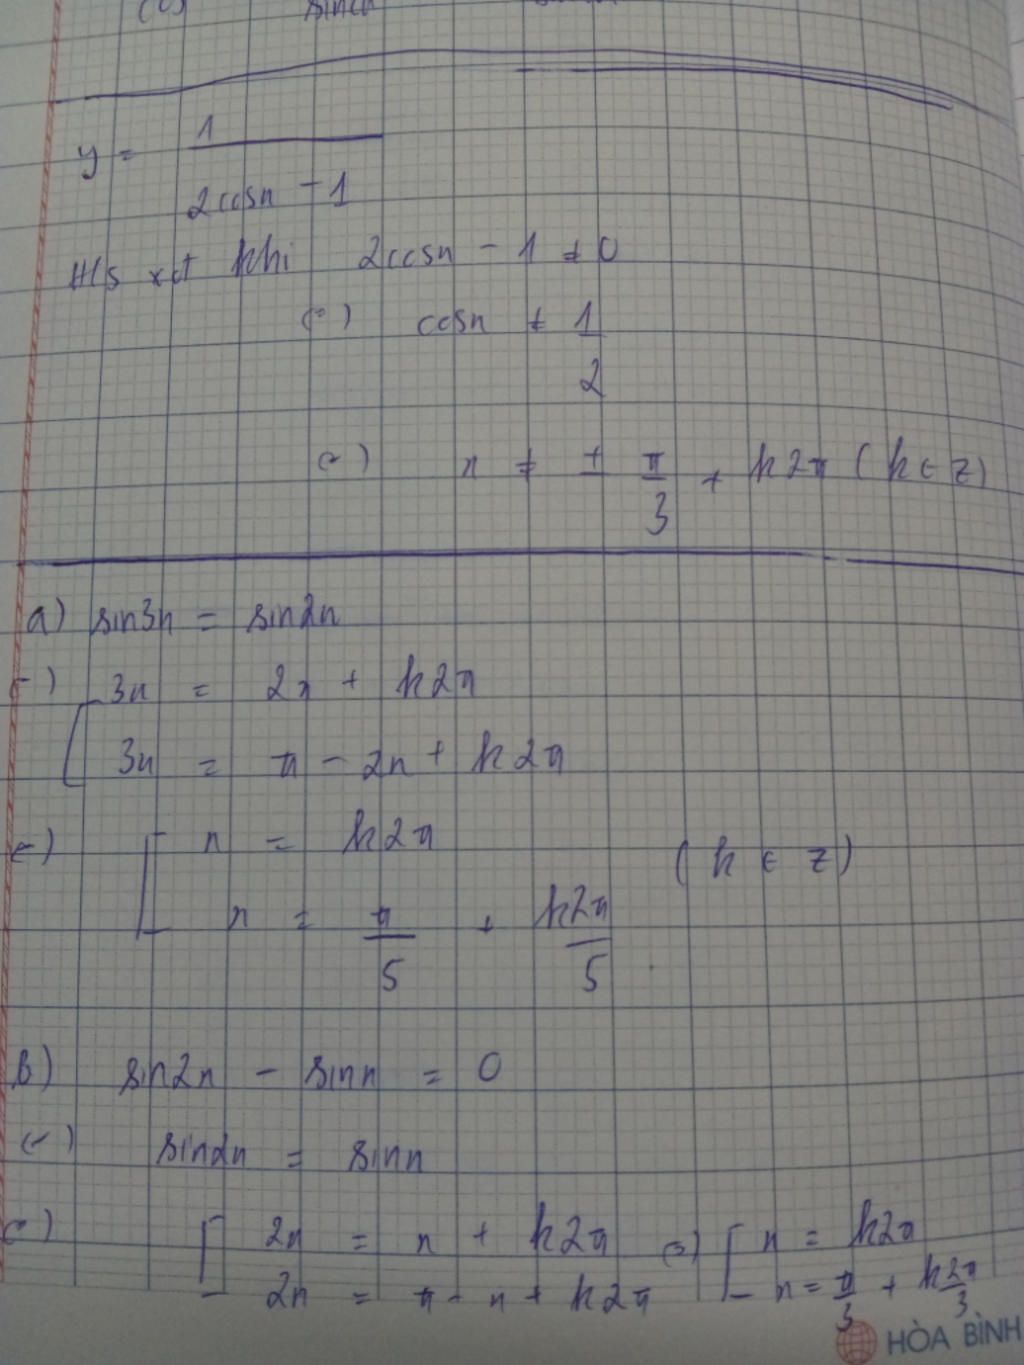 y = 1 / (2cosx - 1)
H/s xđ khi 2cosx - 1 ≠ 0
(=) cosx ≠ 1/2
(=) x ≠ ± π/3 + k2π (k ∈ Z)
a) sin3x = sin2x
(=) [ 3x = 2x + k2π
3x = π - 2x + k2π
(=) [ x = k2π
(k ∈ Z)
x = π/5 + k2π/5
b) sin2x - sinx = 0
(=) sin2x = sinx
(=) [ 2x = x + k2π (=) [ x = k2π
2x = π - x + k2π x = π/3 + k2π/3
HÒA BÌNH